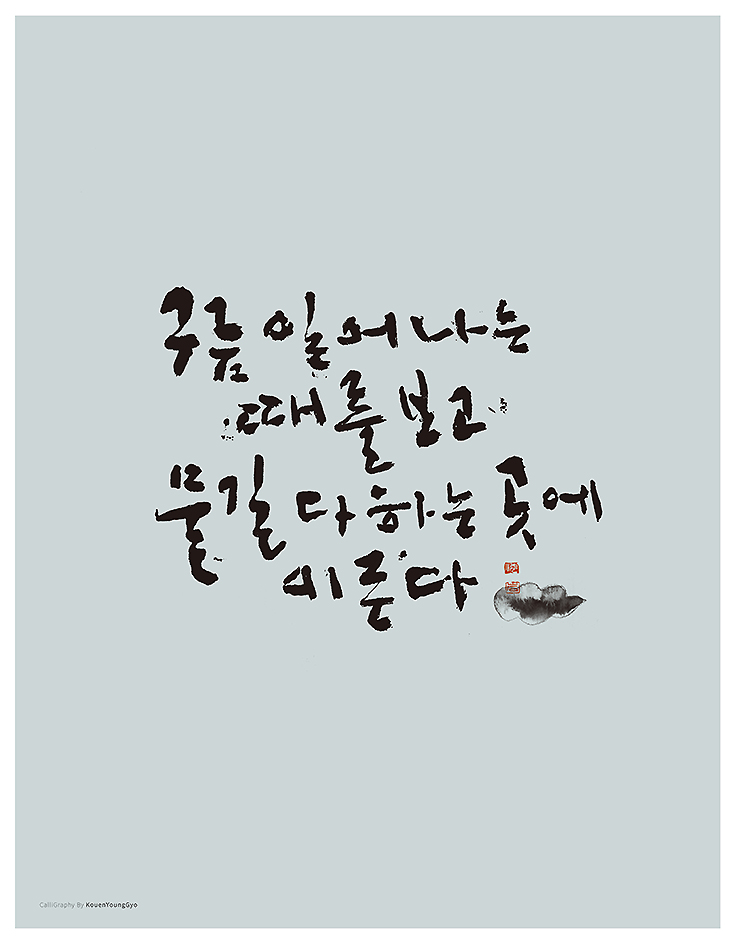 구름 일어나는
때를 보고
물길 다하는 곳에
이른다
CalliGraphy By KouenYoungGyo